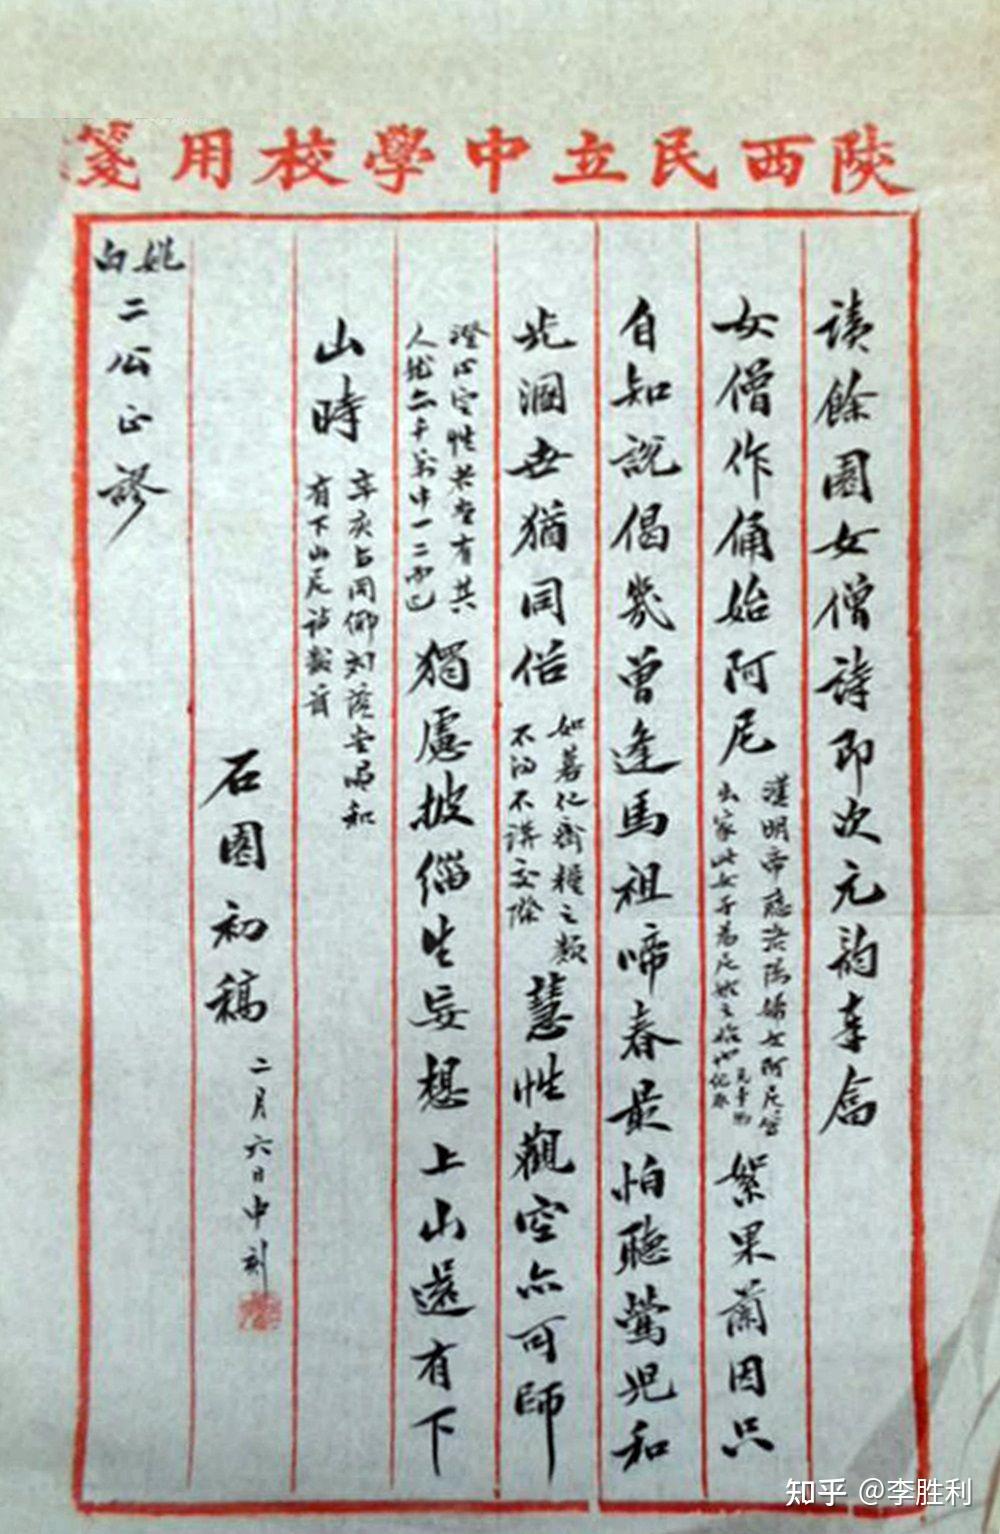 陝西民立中學校用箋
讀餘園女僧詩即次元韵奉龕
女僧作俑始阿尼
漢明帝聽洛陽婦女阿尼等
出家此女子為尼姑之始也
絮果蘭因只
自知說偈幾曾逢馬祖啼春最怕聽鶯兒和
光溷世猶同俗
如募化齋糧之類
不得不講交際
慧性觀空亦可師
澄心空性者有其
人然亦千萬中一二而已
獨慮披緇生妄想上山還有下
山時
辛亥與同鄉劉唱和
有下山尼詩數首
石園初稿
二月六日中刻
姚白二公正謬
知乎 @李胜利